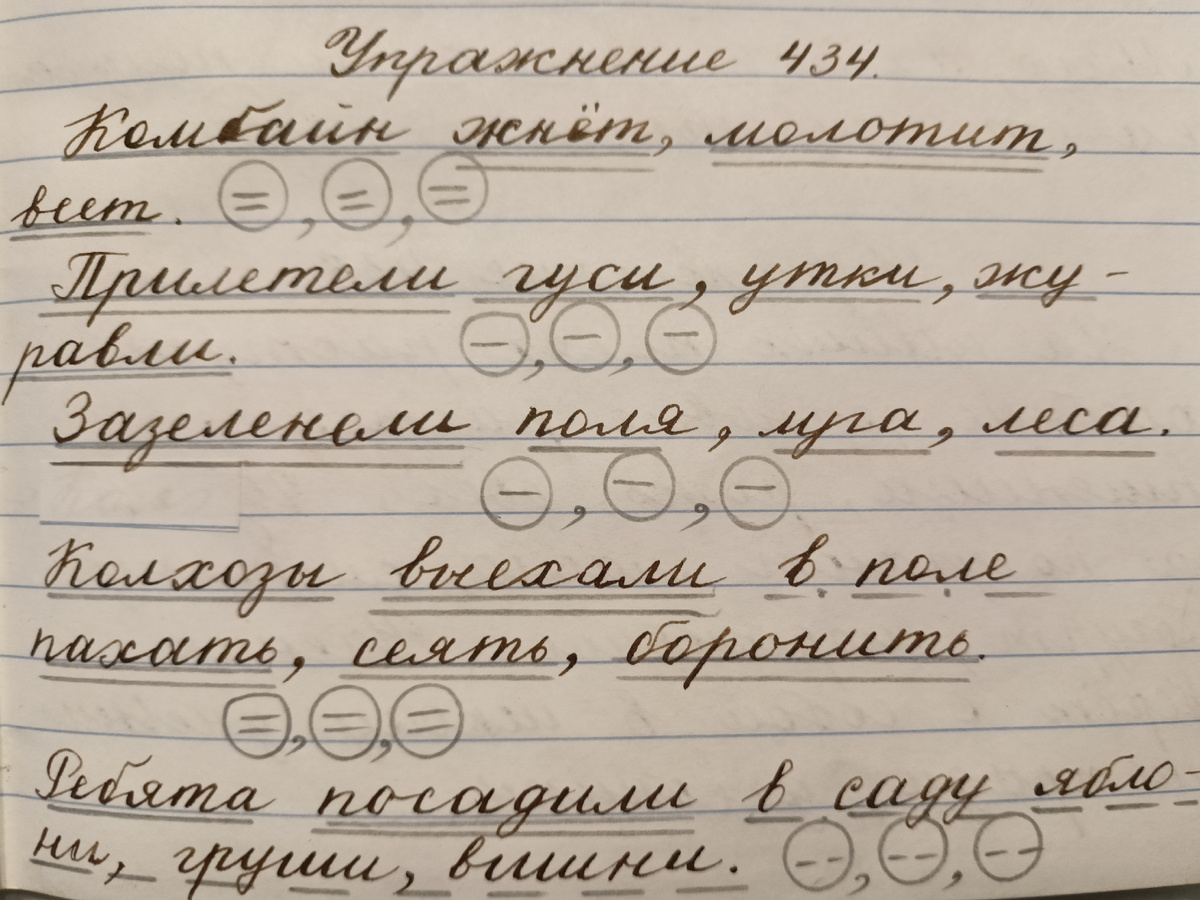 Упражнение 434.
Комбайн жнёт, молотит,
веет.
Прилетели гуси, утки, жу-
равли.
Зазеленели поля, луга, леса.
Колхозы выехали в поле
пахать, сеять, боронить.
Ребята посадили в саду ябло-
ни, груши, вишни.